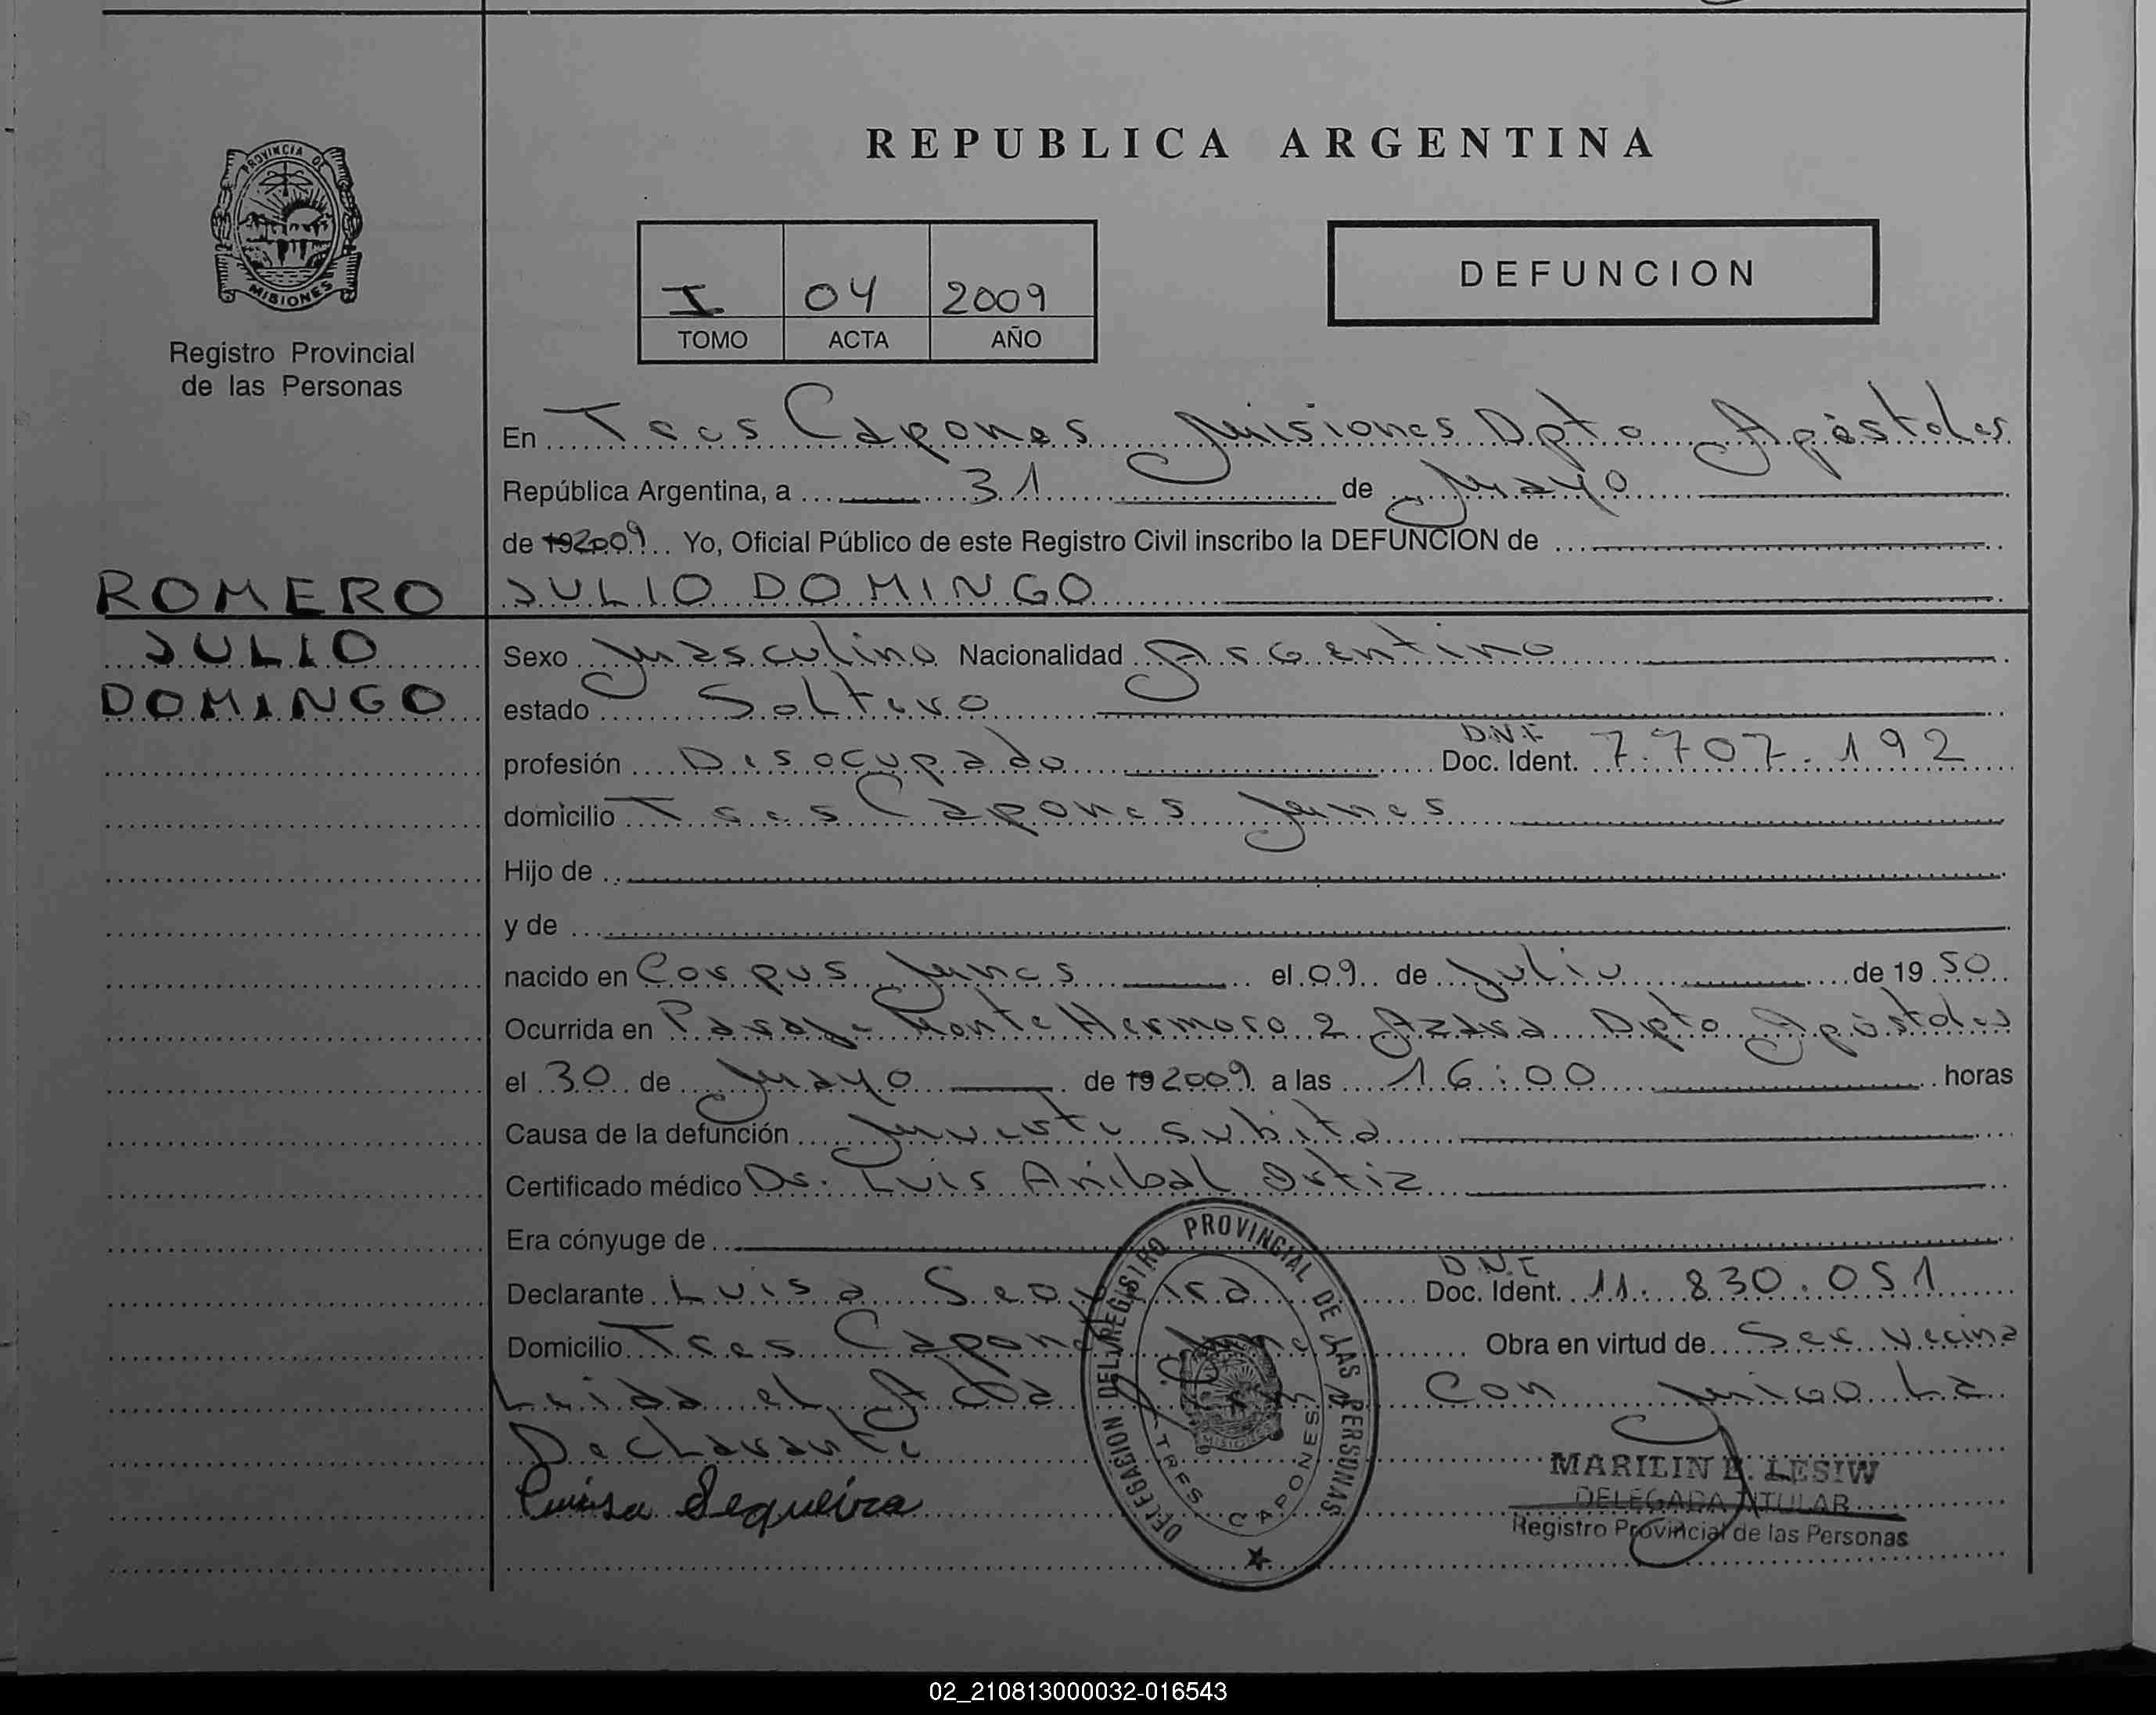 REPUBLICA ARGENTINA
PROVINCIA DE
MISIONES
Registro Provincial
de las Personas
I 04 2009
TOMO ACTA AÑO
DEFUNCION
En Tres Capones Misiones Dpto Apóstoles
República Argentina, a 31 de Mayo
de 192009 Yo, Oficial Público de este Registro Civil inscribo la DEFUNCION de
ROMERO JULIO DOMINGO
JULIO
DOMINGO
Sexo Masculino Nacionalidad Argentino
estado Soltero
profesión Desocupado D.N.I Doc. Ident. 7.707.192
domicilio Tres Capones Mnes
Hijo de
y de
nacido en Corpus Mnes el 09 de Julio de 19 50
Ocurrida en Paraje Monte Hermoso 2 Azara Dpto Apóstoles
el 30 de Mayo de 19 2009 a las 16:00 horas
Causa de la defunción Muerte subita
Certificado médico Dr. Luis Anibal Ortiz
Era cónyuge de
Declarante Luisa Sequeira D.N.I Doc. Ident. 11.830.051
Domicilio Tres Capones Obra en virtud de Ser vecina
Leida el Acta Con migo La
Declarante
Luisa Sequeira
DELEGACION DEL REGISTRO PROVINCIAL DE LAS PERSONAS
MISIONES
TRES CAPONES
MARILIN LESIW
DELEGADA TITULAR
Registro Provincial de las Personas
02_210813000032-016543